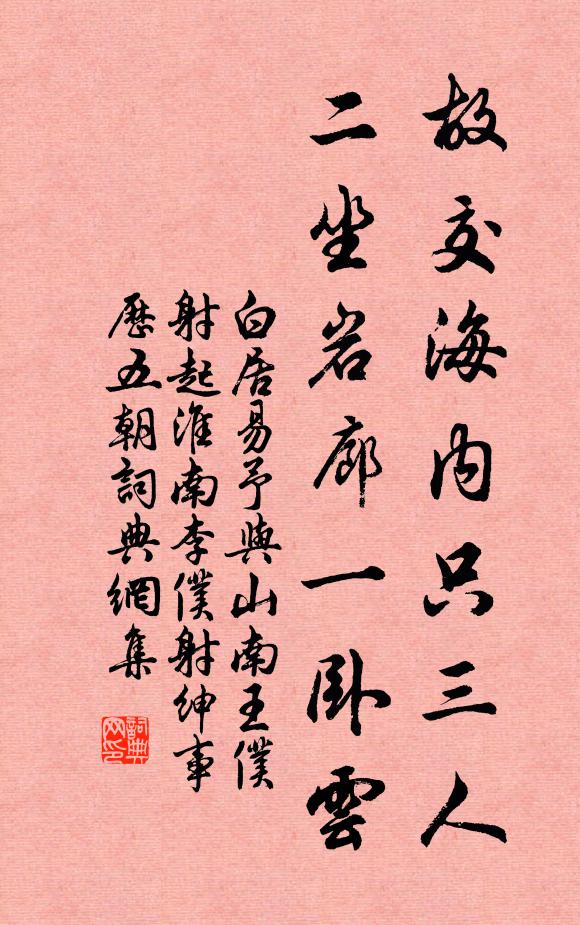 故交海内只三人
二坐岩廊一卧雲
白居易予與山南王僕
射起淮南李僕射紳事
歷五朝詞典網集
詞典
网印